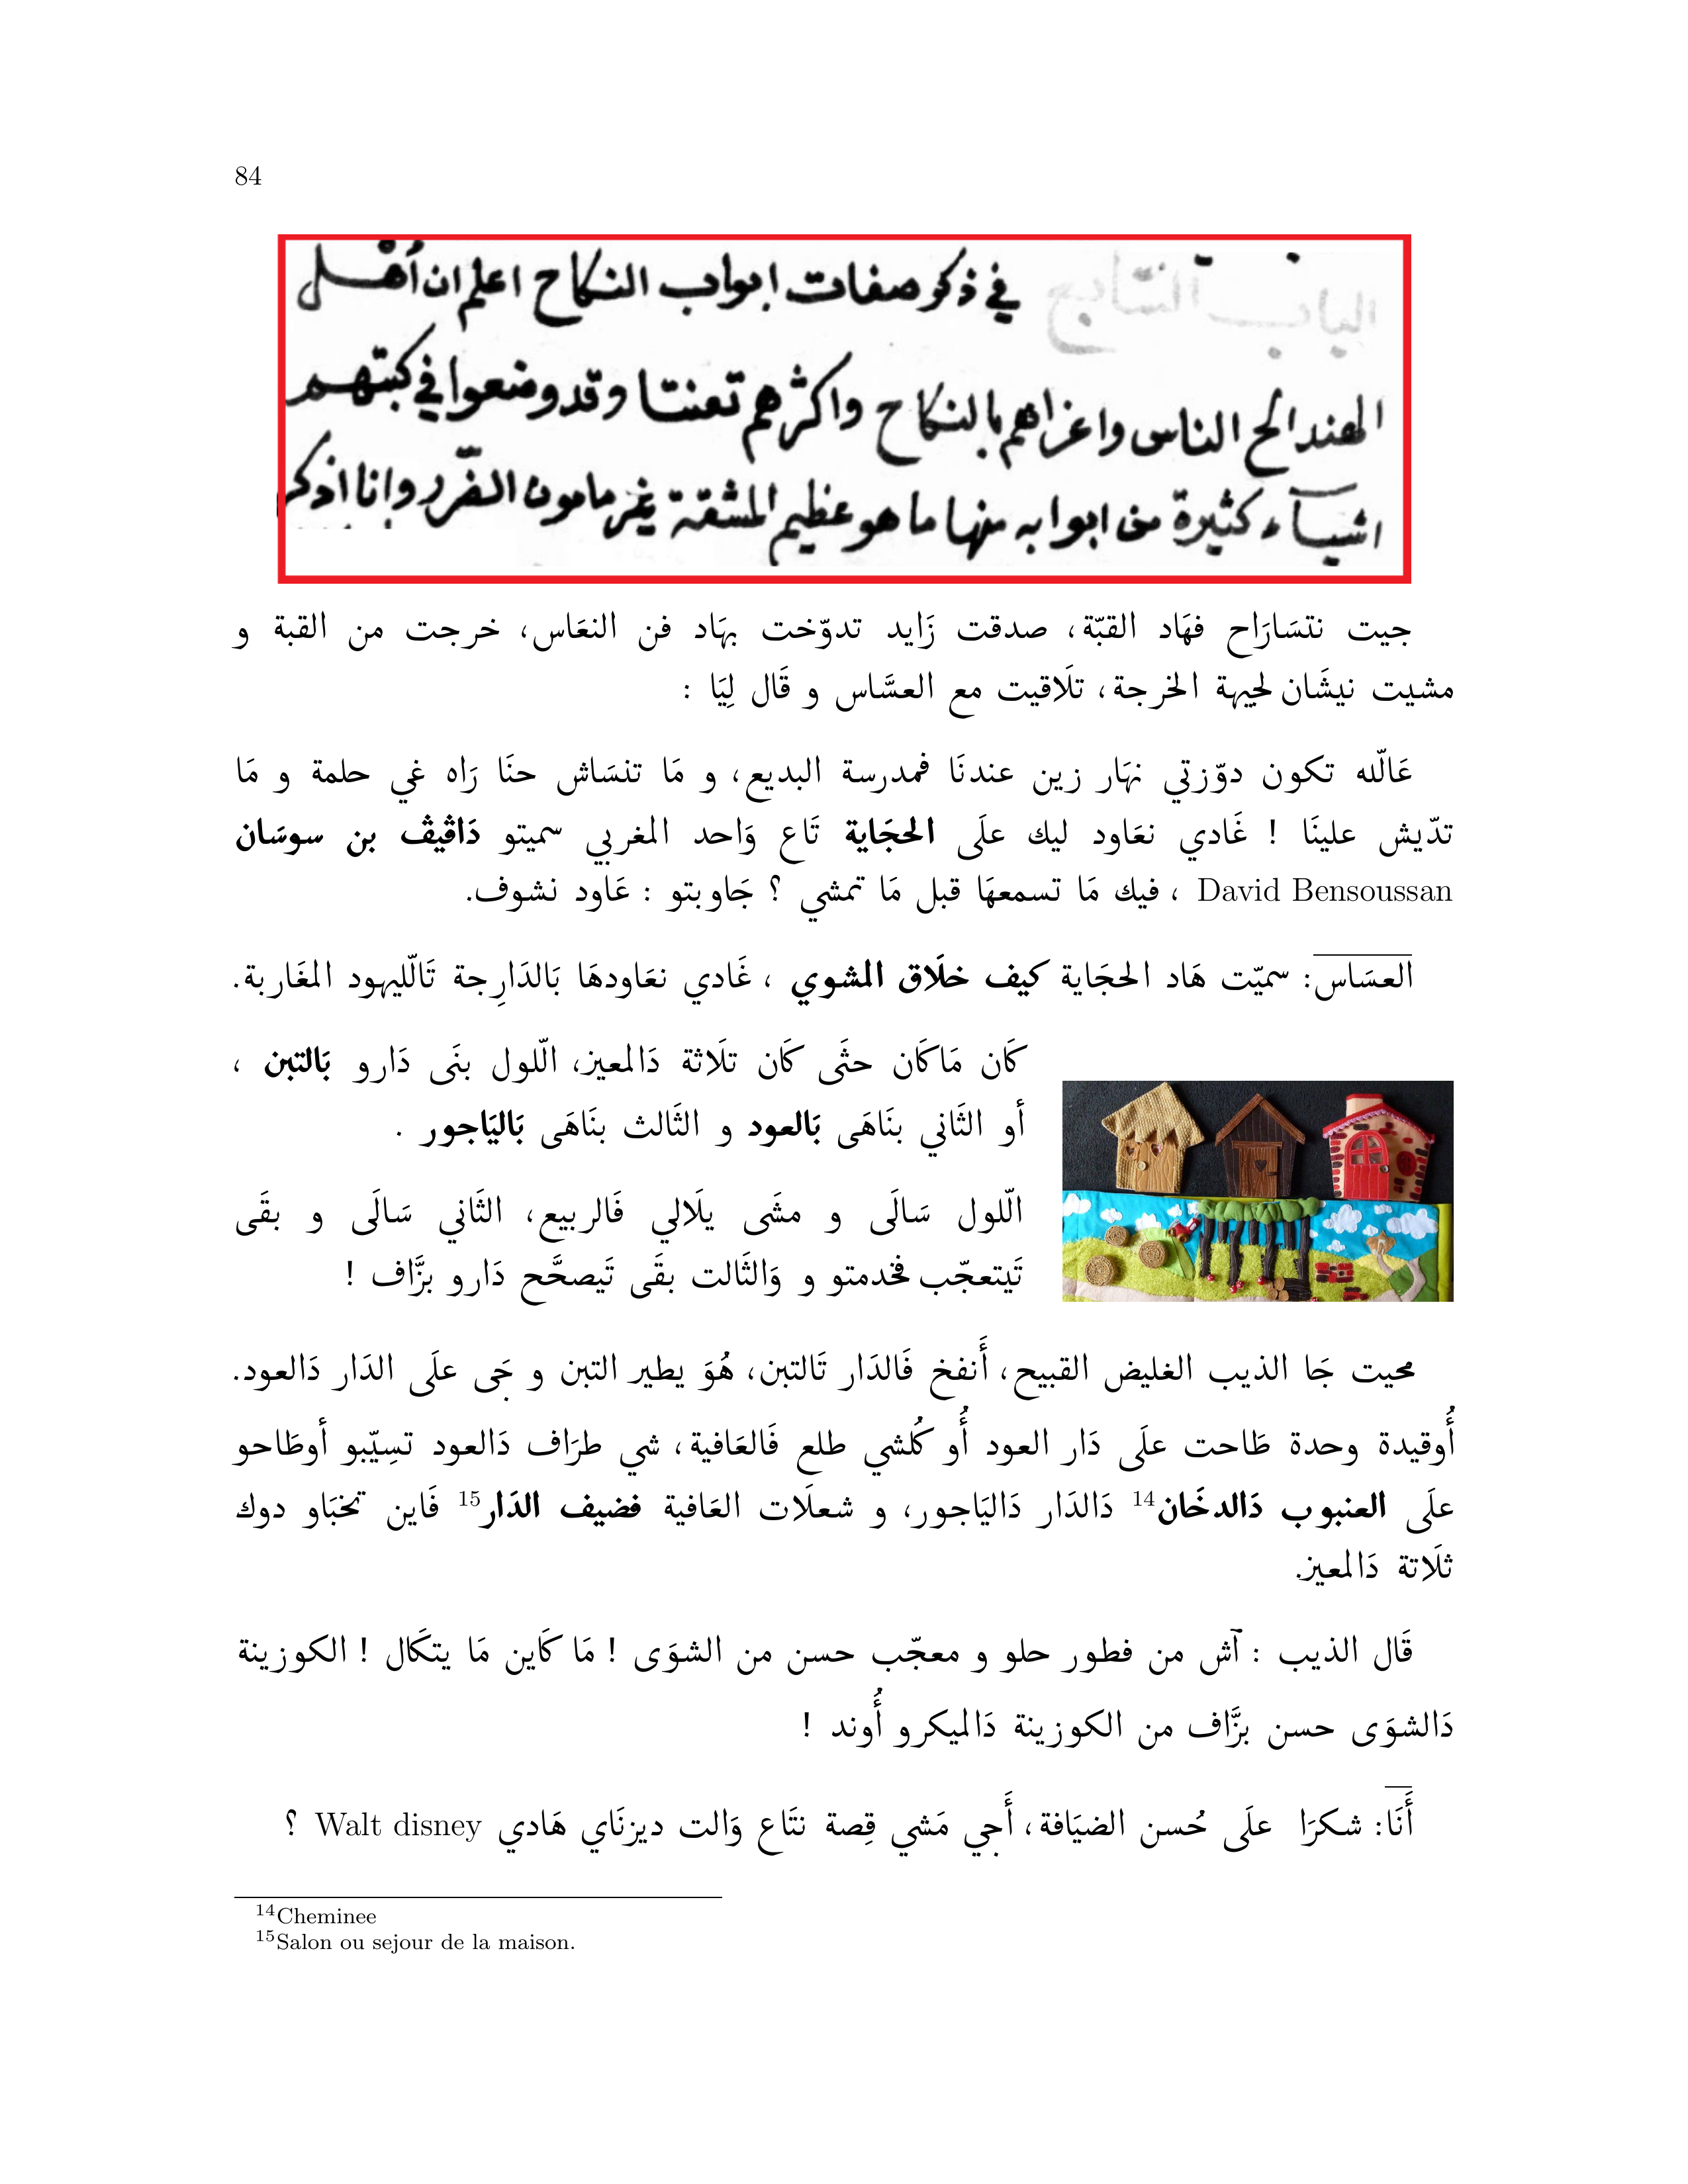 84
في ذكر صفات ابواب النكاح اعلم ان أهل
الهند الح الناس واغزاهم بالنكاح واكثرهم تعنتا وقد وضعوا في كتبهم
اشيآء كثيرة من ابوابه منها ما هو عظيم المشقة غير مامون الضّرر وانا اذكر
جيت نتسَارَاح فهَاد القبّة، صدقت زَايد تدوّخت بهَاد فن النعَاس، خرجت من القبة و
مشيت نيشَان لجيهة الخرجة، تلَاقيت مع العسَّاس و قَال لِيَا :
عَالّله تكون دوّزتي نهَار زين عندنَا فمدرسة البديع، و مَا تنسَاش حنَا رَاه غي حلمة و مَا
تدّيش علينَا ! غَادي نعَاود ليك علَى الحجَاية تَاع وَاحد المغربي سميتو دَاڤيڤ بن سوسَان
David Bensoussan ، فيك مَا تسمعهَا قبل مَا تمشي ؟ جَاوبتو : عَاود نشوف.
العسَاس: سميّت هَاد الحجَاية كيف خلَاق المشوي ، غَادي نعَاودهَا بَالدَارِجة تَالّليهود المغَاربة.
كَان مَاكَان حتَّى كَان تلَاثة دَالمعيز، الّلول بنَى دَارو بَالتبن ،
أو الثَاني بنَاهَى بَالعود و الثَالث بنَاهَى بَاليَاجور .
الّلول سَالَى و مشَى يلَالي فَالربيع، الثَاني سَالَى و بقَى
تَيتعجّب فخدمتو و وَالثَالت بقَى تَيصحَّح دَارو بزَّاف !
محيت جَا الذيب الغليض القبيح، أَنفخ فَالدَار تَالتبن، هُوَ يطير التبن و جَى علَى الدَار دَالعود.
أُوقيدة وحدة طَاحت علَى دَار العود أُو كُلشي طلع فَالعَافية، شي طرَاف دَالعود تسِيّبو أوطَاحو
علَى العنبوب دَالدخَان14 دَالدَار دَاليَاجور، و شعلَات العَافية فضيف الدَار15 فَاين تخبَاو دوك
ثلَاتة دَالمعيز.
قَال الذيب : آش من فطور حلو و معجّب حسن من الشوَى ! مَا كَاين مَا يتكَال ! الكوزينة
دَالشوَى حسن بزَّاف من الكوزينة دَالميكرو أُوند !
أَنَا: شكرَا علَى حُسن الضيَافة، أَجي مَشي قِصة نتَاع وَالت ديزنَاي هَادي Walt disney ؟
14Cheminee
15Salon ou sejour de la maison.